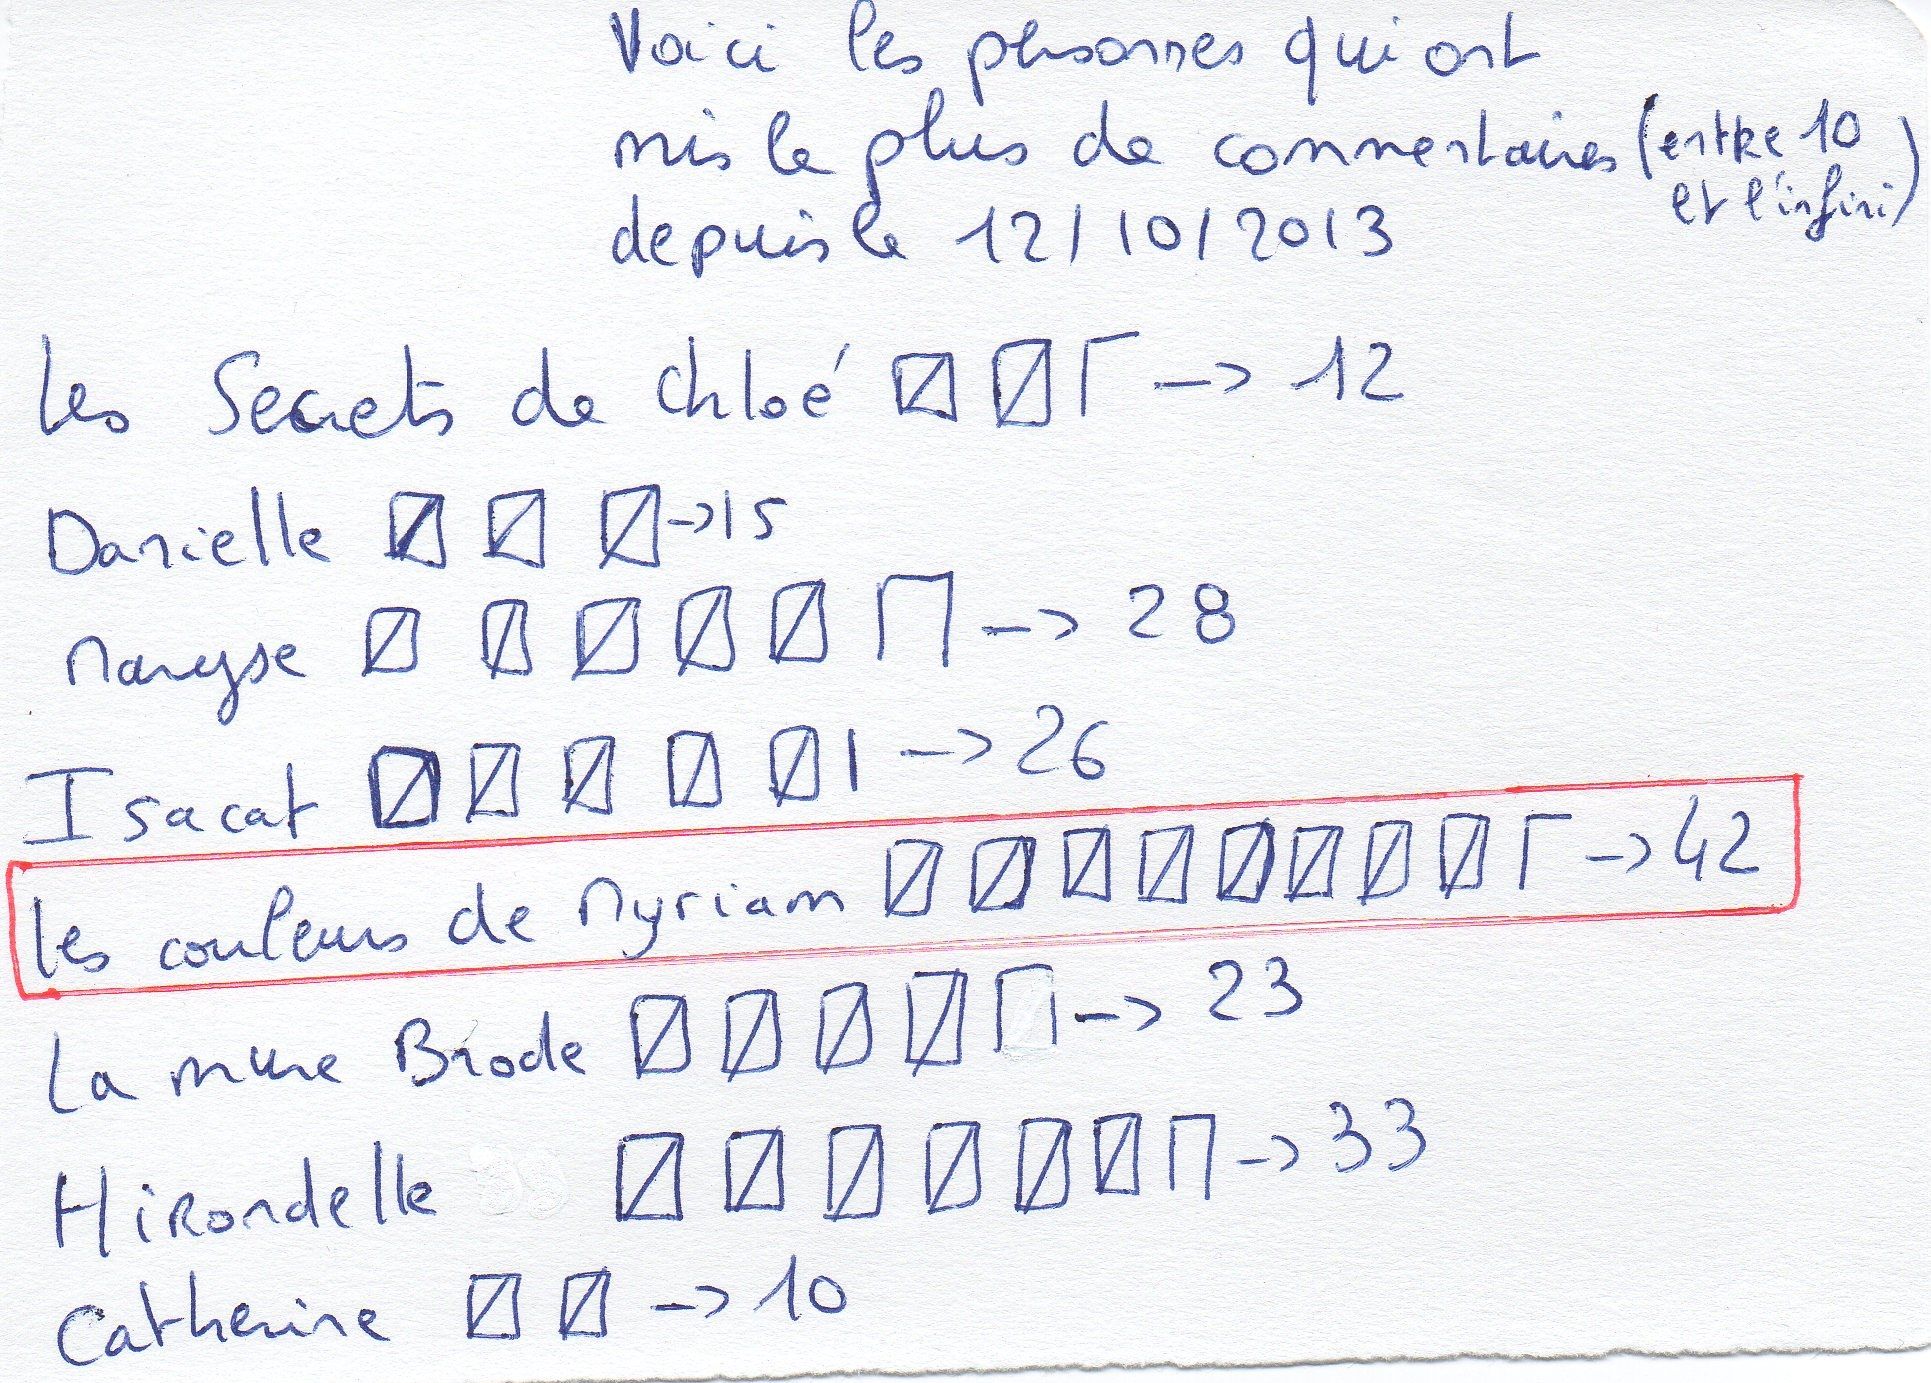 Voici les personnes qui ont
mis le plus de commentaires (entre 10
et l'infini)
depuis le 12/10/2013
Les Secrets de Chloé → 12
Danielle → 15
Maryse → 28
Isacat → 26
les couleurs de Myriam → 42
La mure Brode → 23
Hirondelle → 33
Catherine → 10